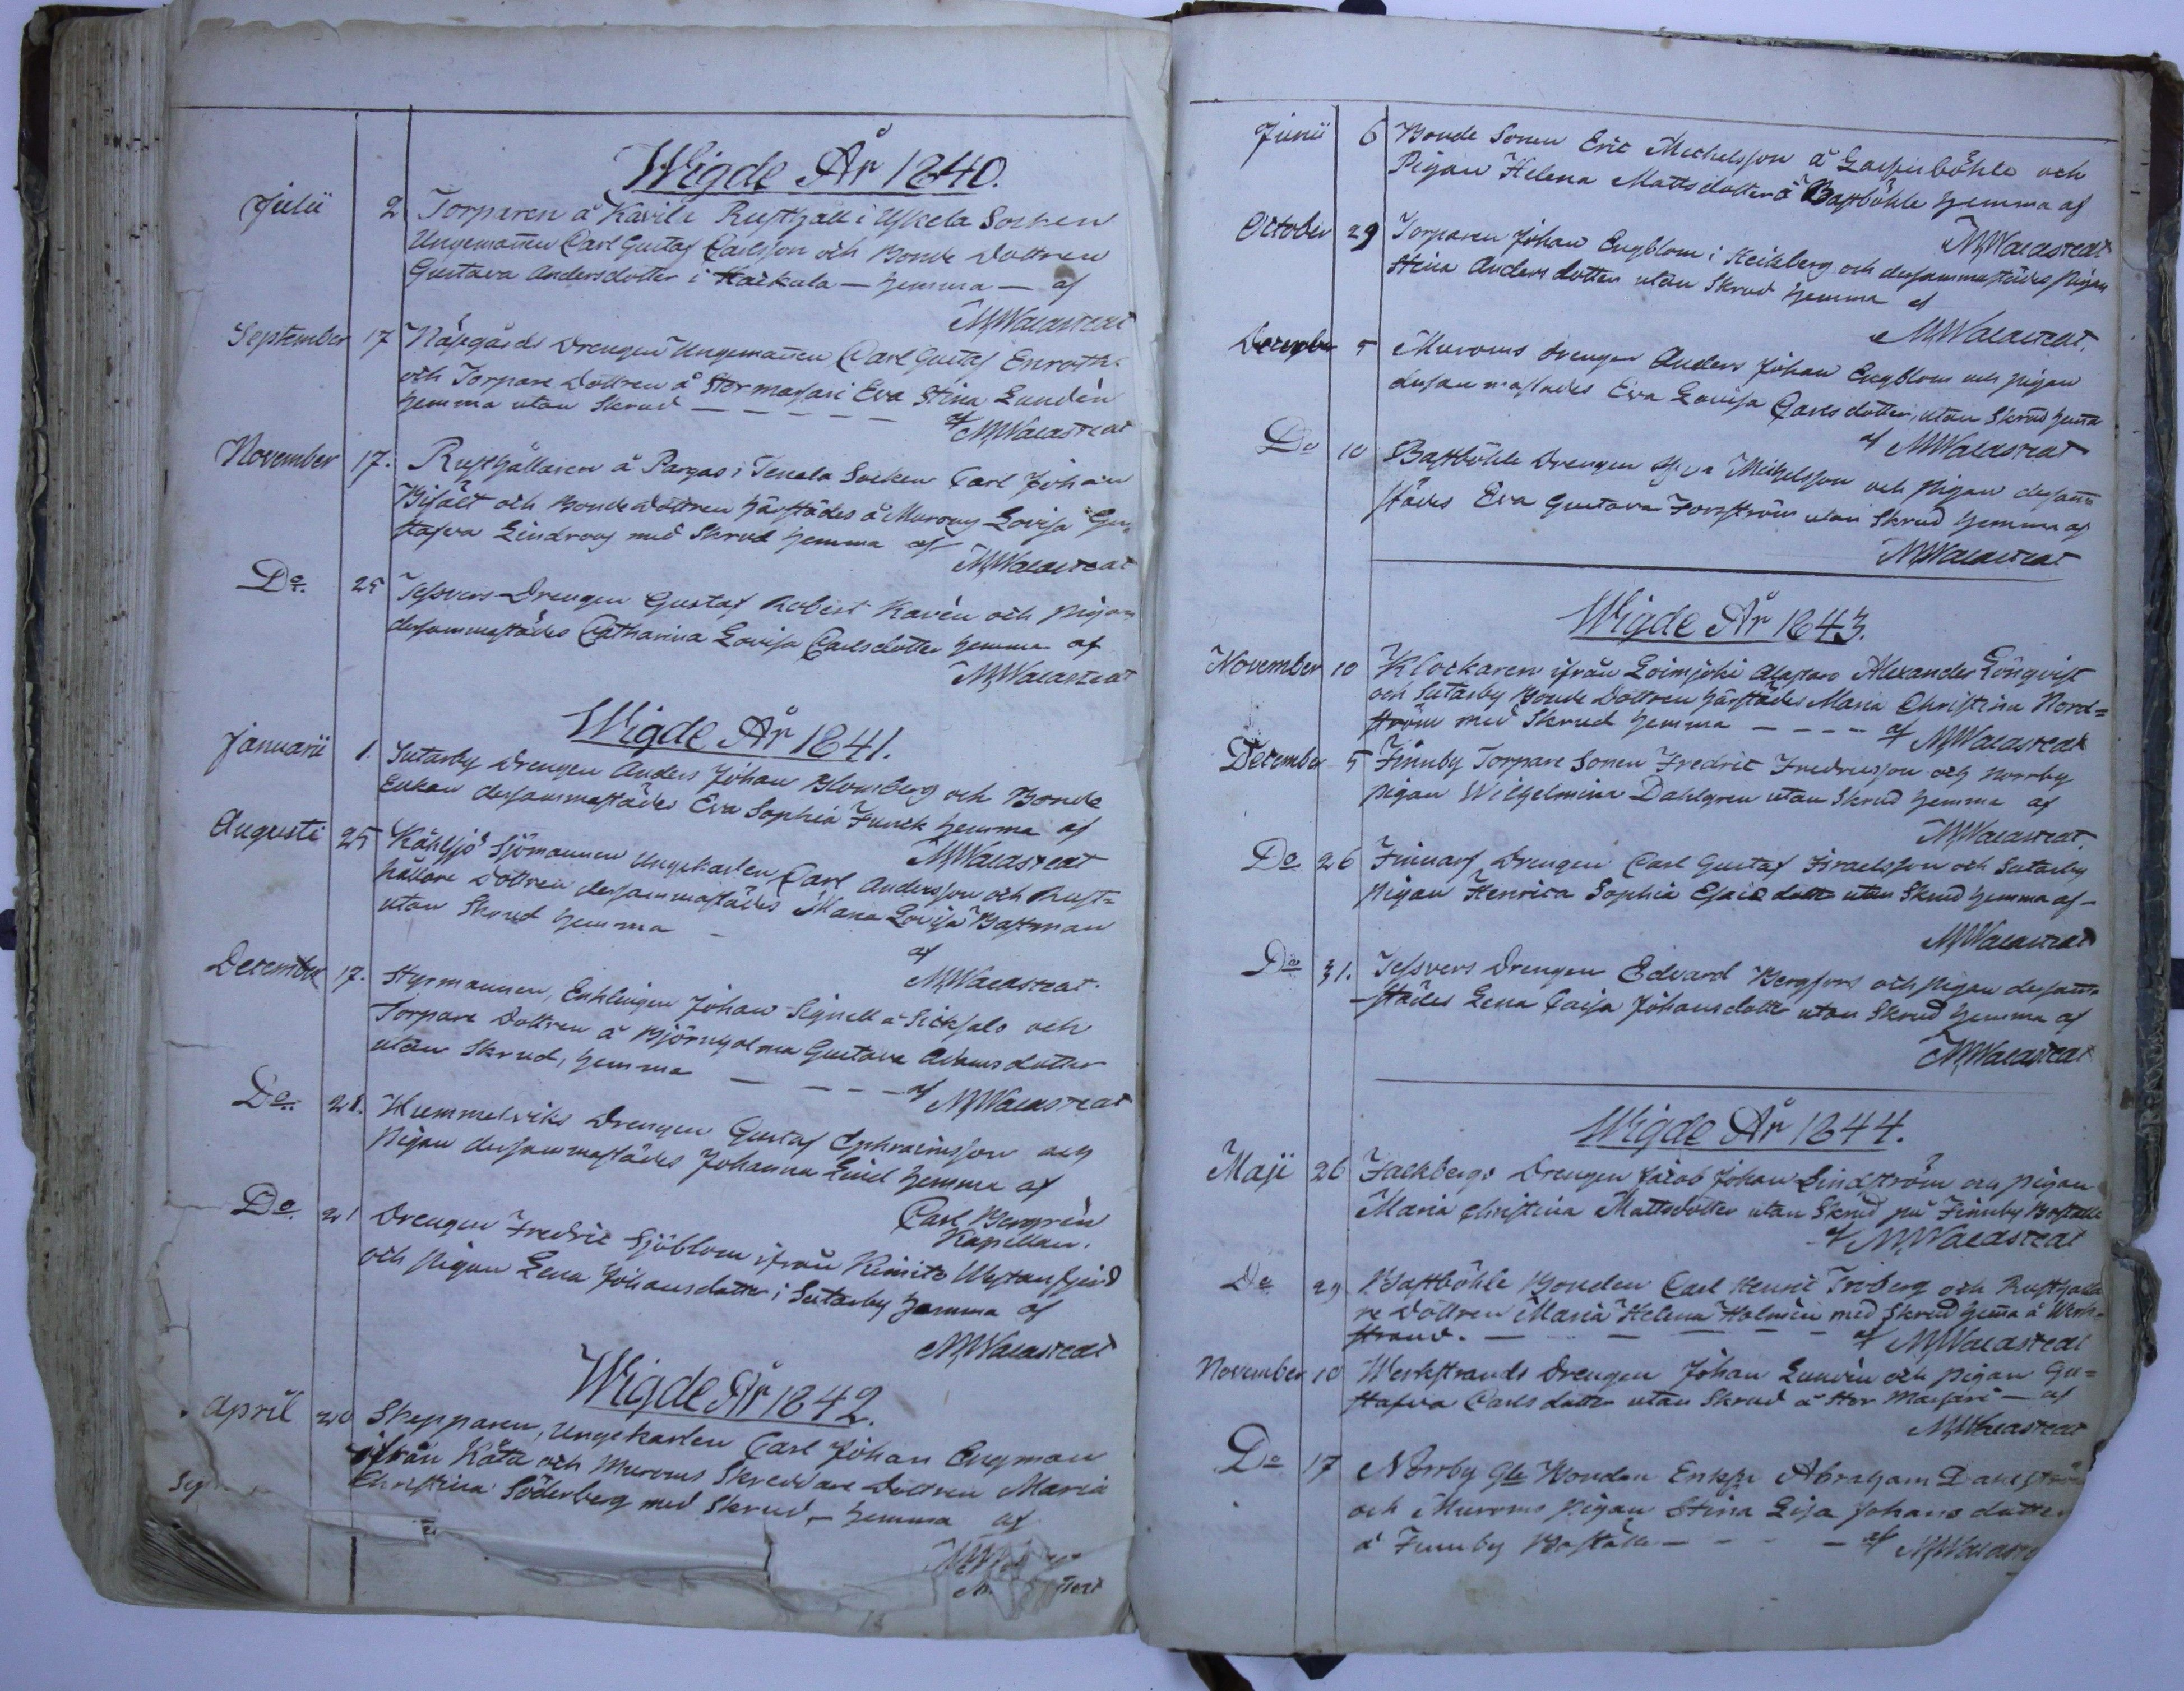 Wigde År 1840.
Julii 2 Torparen å Kavila Rusthåll i Uskela Socken
Ungemannen Carl Gustaf Carlsson och Bonde Dottren
Gustava Andersdotter i Kaikula — hemma — af
M Walastedt
September 17 Näsegårds Drengen Ungemannen Carl Gustaf Enroth
och Torpare Dottren å Stormasari Eva Stina Lundén
hemma utan Skrud — — — — —
af M Walastedt
November 17. Rusthållaren å Pargas i Tenala Socken Carl Johan
och Bonde Dottren härstädes å Murony Lovisa Gu-
stafva Lindroos med Skrud hemma af
M Walastedt
Do. 25 Tessvers Drengen Gustaf Robert Kavén och Pigan
dersammastädes Catharina Lovisa Carlsdotter hemma af
M Walastedt
Wigde År 1841.
Januarii 1. Sutarby Drengen Anders Johan Blomberg och Bonde
Enkan dersammastädes Eva Sophia Funck hemma af
M Walastedt
Augusti 25 Sjömannen Ungekarlen Carl Andersson och Rust=
hållare Dottren dersammastädes Maria Lovisa Bastman
utan Skrud hemma —
af
M Walastedt.
December 17. Styrmannen, Enklingen Johan Signell å Sicksalo och
Torpare Dottren å Björnholma Gustava Adamsdotter
utan Skrud, hemma — — — — af M Walastedt
Do. 28. Hummelviks Drengen Gustaf Ephraimsson och
Pigan dersammastädes Johanna Lind hemma af
Carl Bergrén
Kapellan.
Do. 21 Drengen Fredric Sjöblom ifrån Kimito Westanfjerd
och Pigan Lena Johansdotter i Sutarby hemma af
M Walastedt
Wigde År 1842.
April 20 Skepparen, Ungekarlen Carl Johan Engman
ifrån och Muroms Skreddare Dottren Maria
Christina Söderberg med Skrud — hemma af
Junii 6 Bonde Sonen Eric Michelsson å Laspisböhle och
Pigan Helena Mattsdotter å Bastböhle hemma af
M Walastedt
October 29 Torparen Johan Engblom i Heikberg och dersammastädes Pigan
Stina Andersdotter utan Skrud hemma af
M Walastedt.
December 5 Muroms drengen Anders Johan Engblom och Pigan
dersammastädes Eva Lovisa Carlsdotter, utan Skrud hemma
af M Walastedt
Do 10 Bastböhle Drengen Michelsson och Pigan dersamma
städes Eva Gustava Forsström utan Skrud hemma af
M Walastedt
Wigde År 1843.
November 10 Klockaren ifrån Loimijoki Alastaro Alexander Lönqvist
och Sutarby Bonde Dottren härstädes Maria Christina Nord=
ström med Skrud hemma — — — — af M Walastedt
December 5 Finnby Torpare Sonen Fredric Fredricsson och Norrby
Pigan Wilhelmina Dahlgren utan Skrud hemma af
M Walastedt.
Do 26 Finnarf Drengen Carl Gustaf Israelsson och Sutarby
Pigan Henrica Sophia Esaiedotter utan Skrud hemma af —
M Walastedt
Do 31. Tessvers Drengen Edvard Bergfors och Pigan dersamma-
städes Lena Caisa Johansdotter utan Skrud hemma af
M Walastedt
Wigde År 1844.
Maji 26 Falkbergs Drengen Jacob Johan Lindström och Pigan
Maria Christina Mattsdotter utan Skrud på Finnby Boställe
af M Walastedt
Do 29 Bastböhle Bonden Carl Henric Friberg och Rusthålla
re Dottren Maria Helena Holmén med Skrud hemma å Werk-
strand. — — — — — af M Walastedt
November 10 Werkstrands Drengen Johan Lundén och Pigan Gu=
stafva Carlsdotter utan Skrud å Stor Massari — af
M Walastedt
Do 17 Norrby Gle Bonden Enkl: Abraham
och Muroms Pigan Stina Lisa Johansdotter
å Finnby Boställe — — — — af M Walast